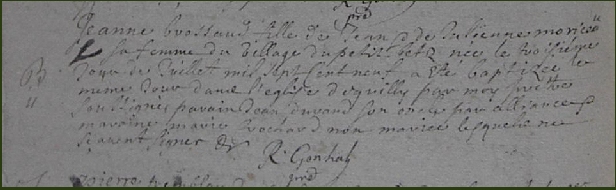 prd
Jeanne brossaud fille de Jean & de Julienne morice
sa femme du village du petit betz née le troisième
jour de Juillet mil sept cent neuf a été baptizée le
B
meme jour dans l'eglise d'quilly par moy prêtre
soubsigné parain Jean durand son oncle par alliance &
maraine marie brochard non mariée lesquels ne
scavent signer &
R. Gonhal
prd
pierre